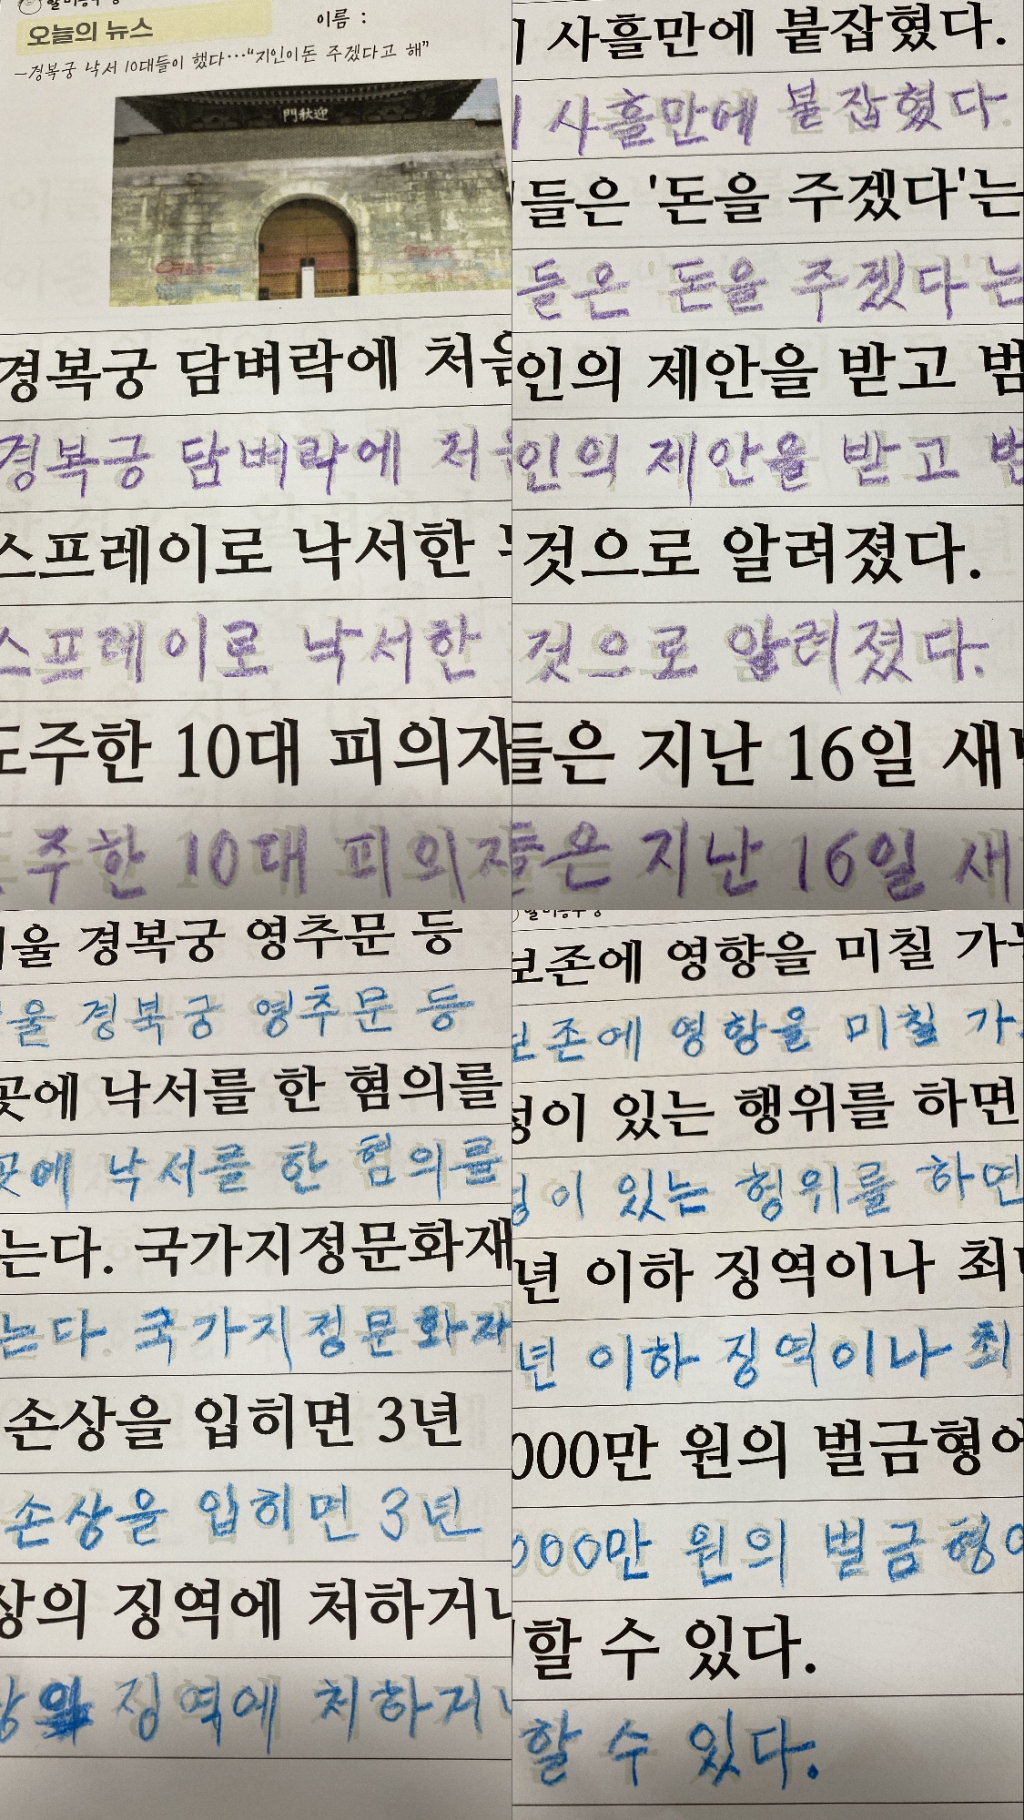 오늘의 뉴스
이름 :
-경복궁 낙서 10대들이 했다…“지인이 돈 주겠다고 해”
迎秋門
경복궁 담벼락에
경복궁 담벼락에
스프레이로 낙서한
스프레이로 낙서한
도주한 10대 피의자
주한 10대 피의자
사흘만에 붙잡혔다.
사흘만에 붙잡혔다.
들은 '돈을 주겠다'는
들은 '돈을 주겠다'는
인의 제안을 받고
인의 제안을 받고
것으로 알려졌다.
것으로 알려졌다.
들은 지난 16일
들은 지난 16일
울 경복궁 영추문 등
울 경복궁 영추문 등
곳에 낙서를 한 혐의를
곳에 낙서를 한 혐의를
는다. 국가지정문화재
는다. 국가지정문화재
손상을 입히면 3년
손상을 입히면 3년
상의 징역에 처하거나
상의 징역에 처하거나
보존에 영향을 미칠
보존에 영향을 미칠
이 있는 행위를 하면
이 있는 헝위를 하면
년 이하 징역이나
년 이하 징역이나
000만 원의 벌금형에
000만 원의 벌금형
할 수 있다.
할 수 있다.